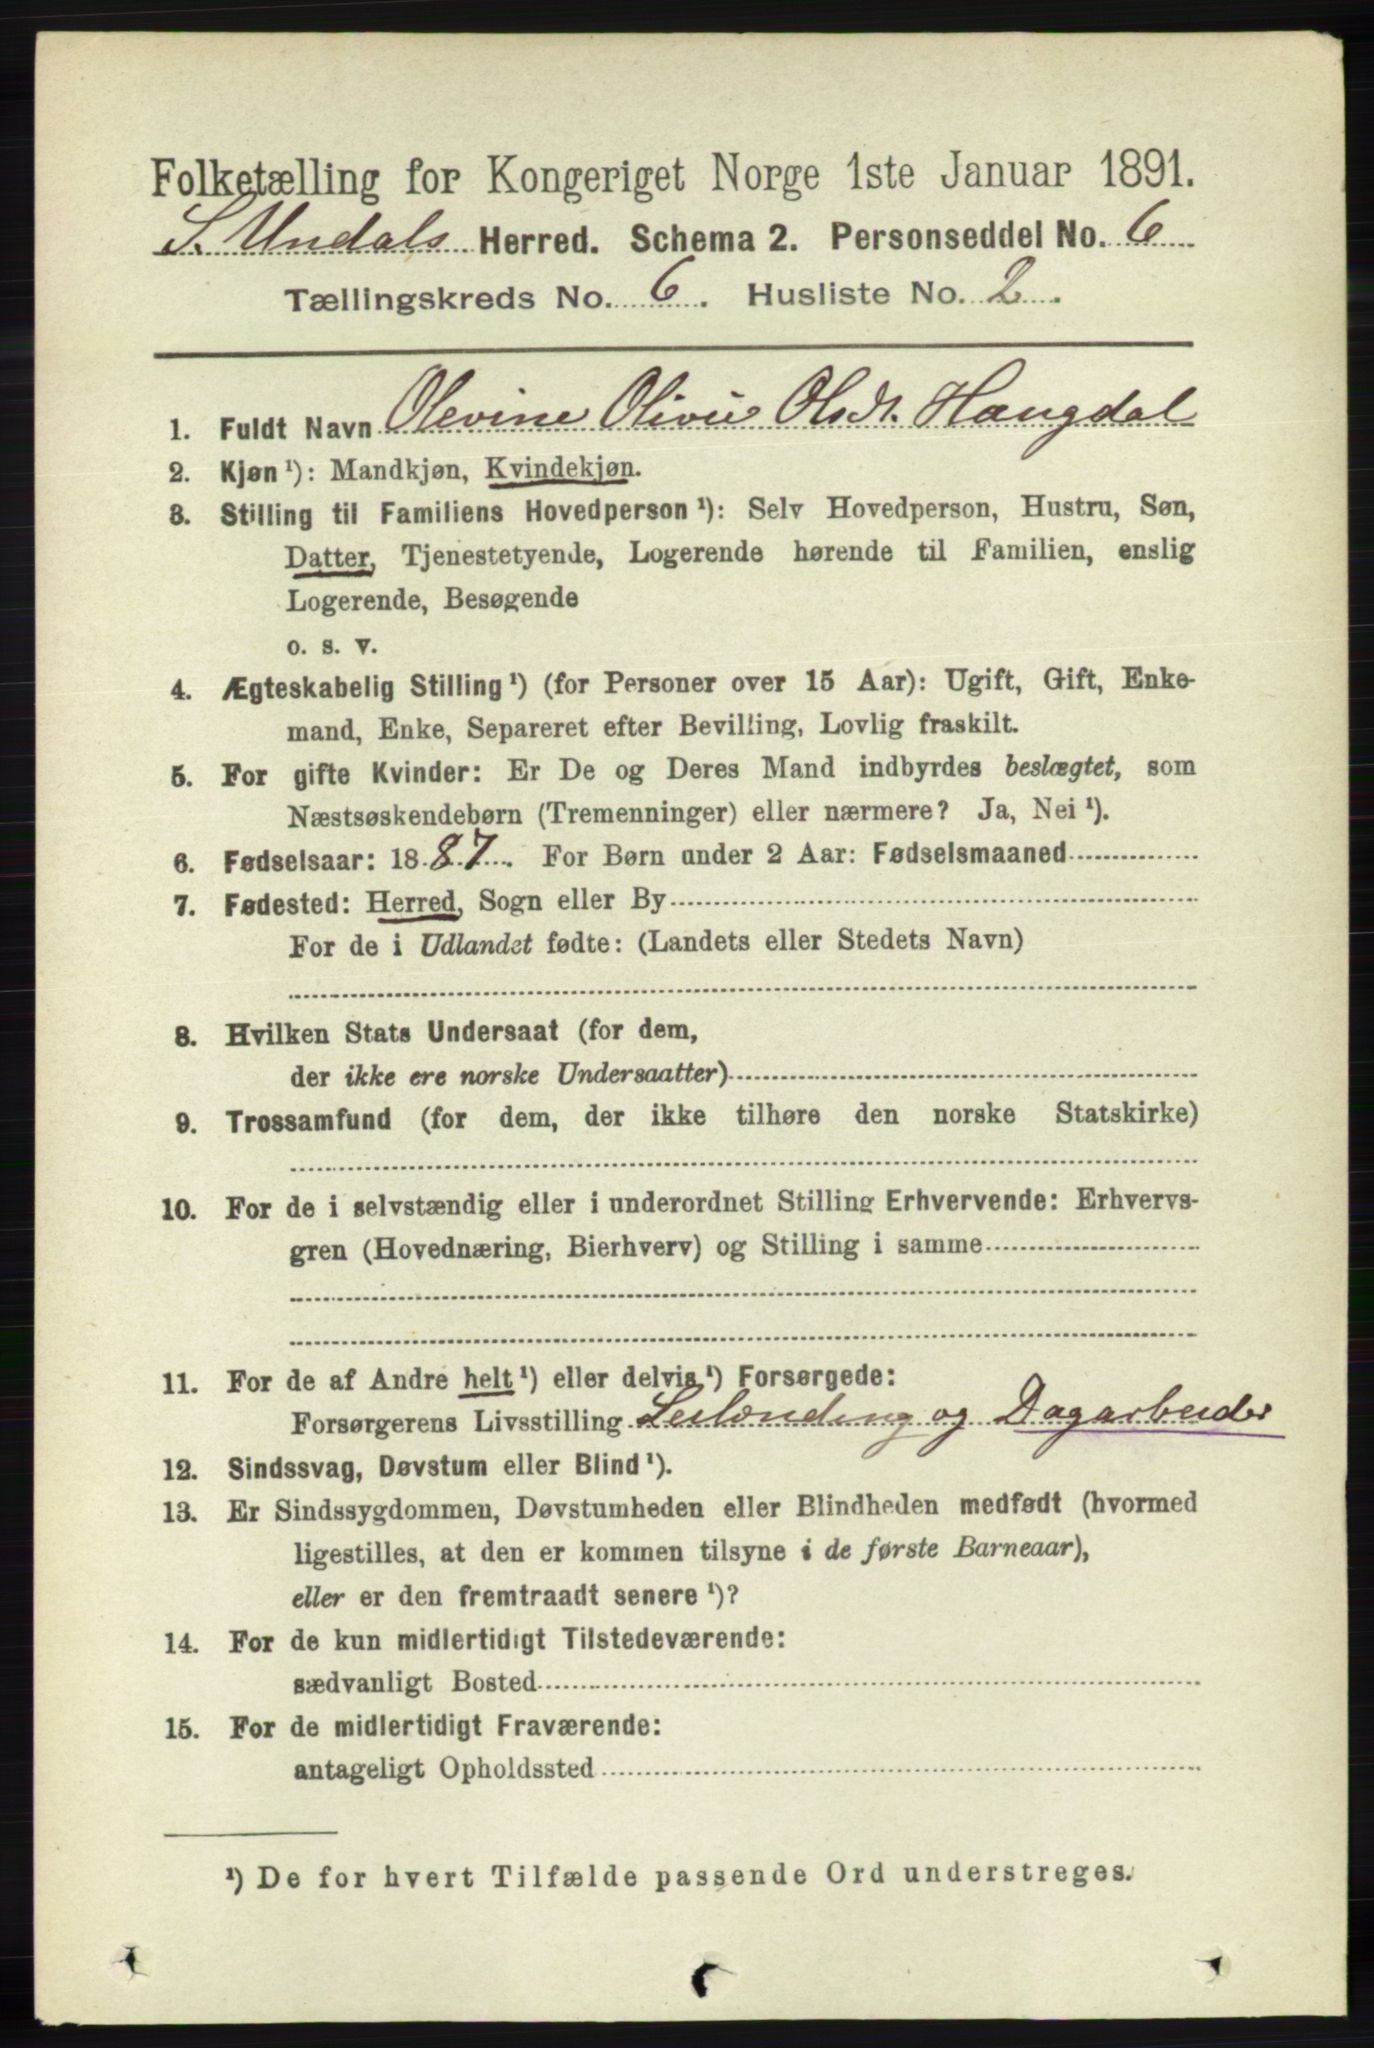 Folketælling for Kongeriget Norge 1ste Januar 1891.
S. Undals Herred. Schema 2. Personseddel No. 6
Tællingskreds No. 6. Husliste No. 2.
1. Fuldt Navn Olevine Olivie Olsdt. Haugdal
2. Kjøn ¹): Mandkjøn, Kvindekjøn.
3. Stilling til Familiens Hovedperson ¹): Selv Hovedperson, Hustru, Søn,
Datter, Tjenestetyende, Logerende hørende til Familien, enslig
Logerende, Besøgende
o. s. v.
4. Ægteskabelig Stilling ¹) (for Personer over 15 Aar): Ugift, Gift, Enke-
mand, Enke, Separeret efter Bevilling, Lovlig fraskilt.
5. For gifte Kvinder: Er De og Deres Mand indbyrdes beslægtet, som
Næstsøskendebørn (Tremenninger) eller nærmere? Ja, Nei ¹).
6. Fødselsaar: 1887. For Børn under 2 Aar: Fødselsmaaned
7. Fødested: Herred, Sogn eller By
For de i Udlandet fødte: (Landets eller Stedets Navn)
8. Hvilken Stats Undersaat (for dem,
der ikke ere norske Undersaatter)
9. Trossamfund (for dem, der ikke tilhøre den norske Statskirke)
10. For de i selvstændig eller i underordnet Stilling Erhvervende: Erhvervs-
gren (Hovednæring, Bierhverv) og Stilling i samme
11. For de af Andre helt ¹) eller delvis ¹) Forsørgede:
Forsørgerens Livsstilling Leilænding og Dagarbeider
12. Sindssvag, Døvstum eller Blind ¹).
13. Er Sindssygdommen, Døvstumheden eller Blindheden medfødt (hvormed
ligestilles, at den er kommen tilsyne i de første Barneaar),
eller er den fremtraadt senere ¹)?
14. For de kun midlertidigt Tilstedeværende:
sædvanligt Bosted
15. For de midlertidigt Fraværende:
antageligt Opholdssted
¹) De for hvert Tilfælde passende Ord understreges.